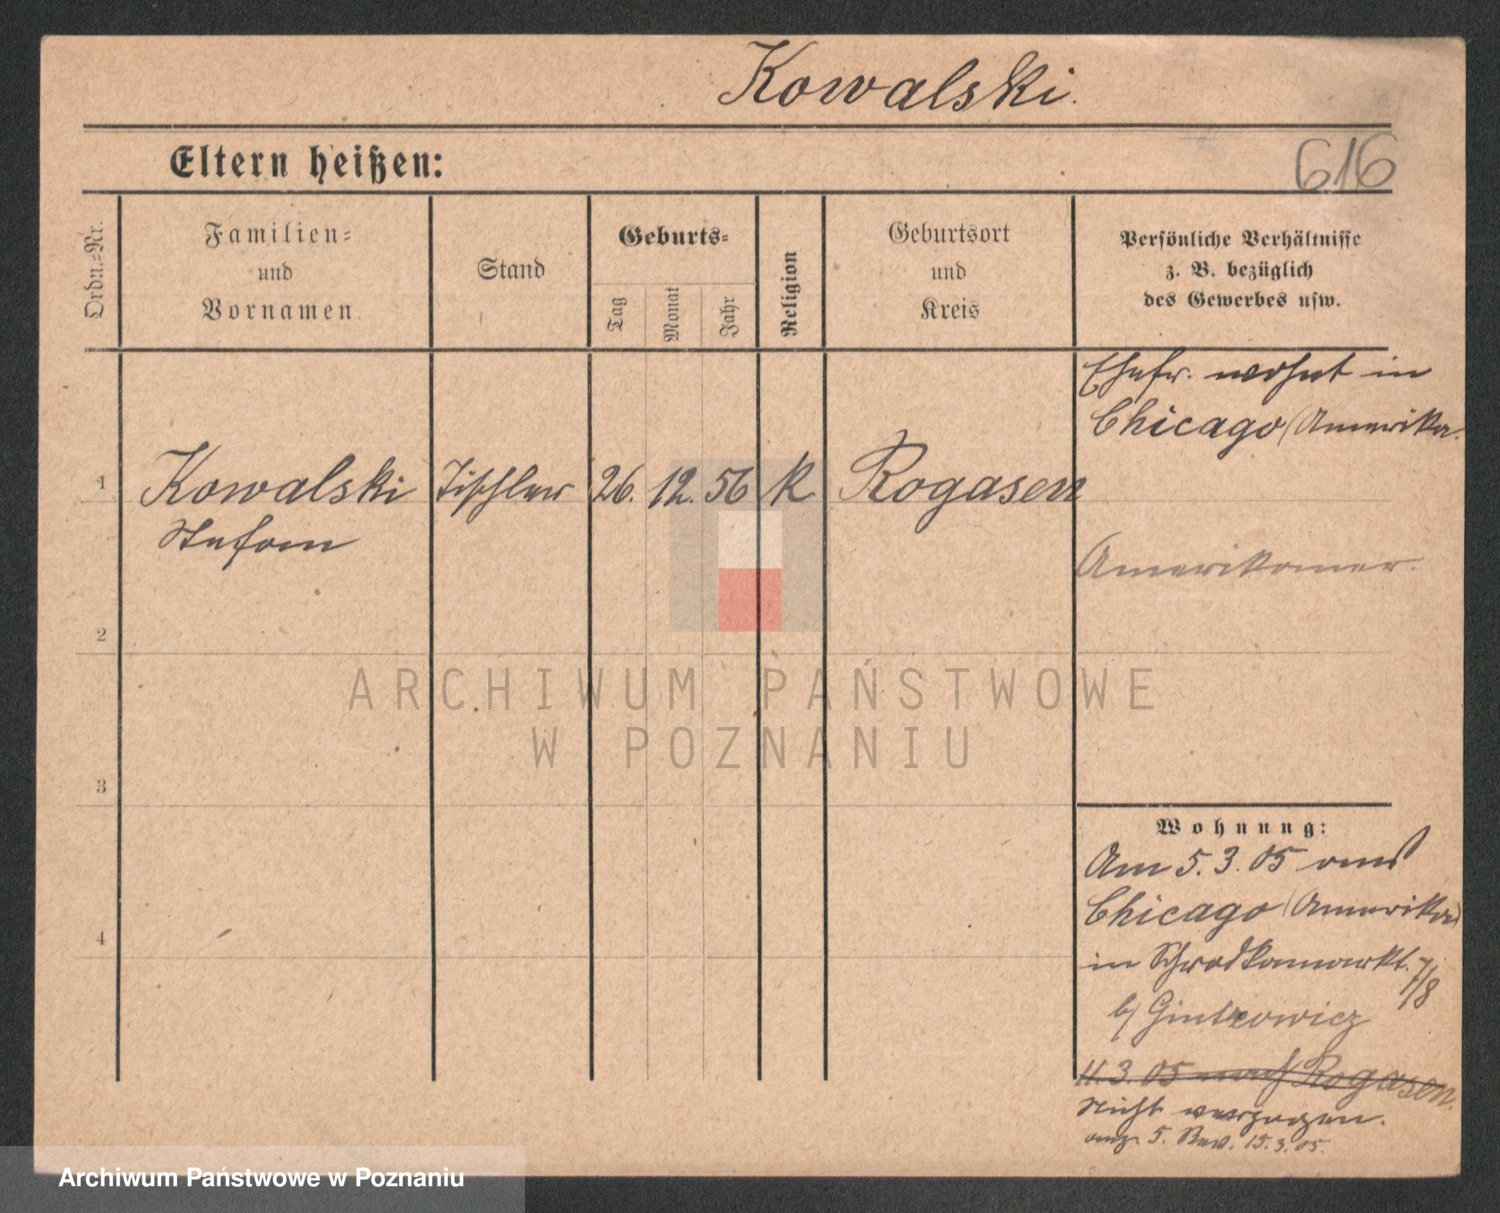 Kowalski.
616
Eltern heißen:
Ordn.=Nr.
Familien=
und
Vornamen
Stand
Geburts=
Tag
Monat
Jahr
Religion
Geburtsort
und
Kreis
Persönliche Verhältnisse
z. B. bezüglich
des Gewerbes usw.
1
Kowalski
Stefan
Tischler
26. 12. 56
k
Rogasen
Ehefr. wohnt in
Chicago (Amerika.
Amerikaner.
2
3
4
Wohnung:
Am 5.3.05 aus
Chicago (Amerika)
in Schrodkamarkt. 7/8
b/
11.3.05 nach Rogasen.
Nicht verzogen.
5. Rev. 15.3.05.
ARCHIWUM PAŃSTWOWE
W POZNANIU
Archiwum Państwowe w Poznaniu